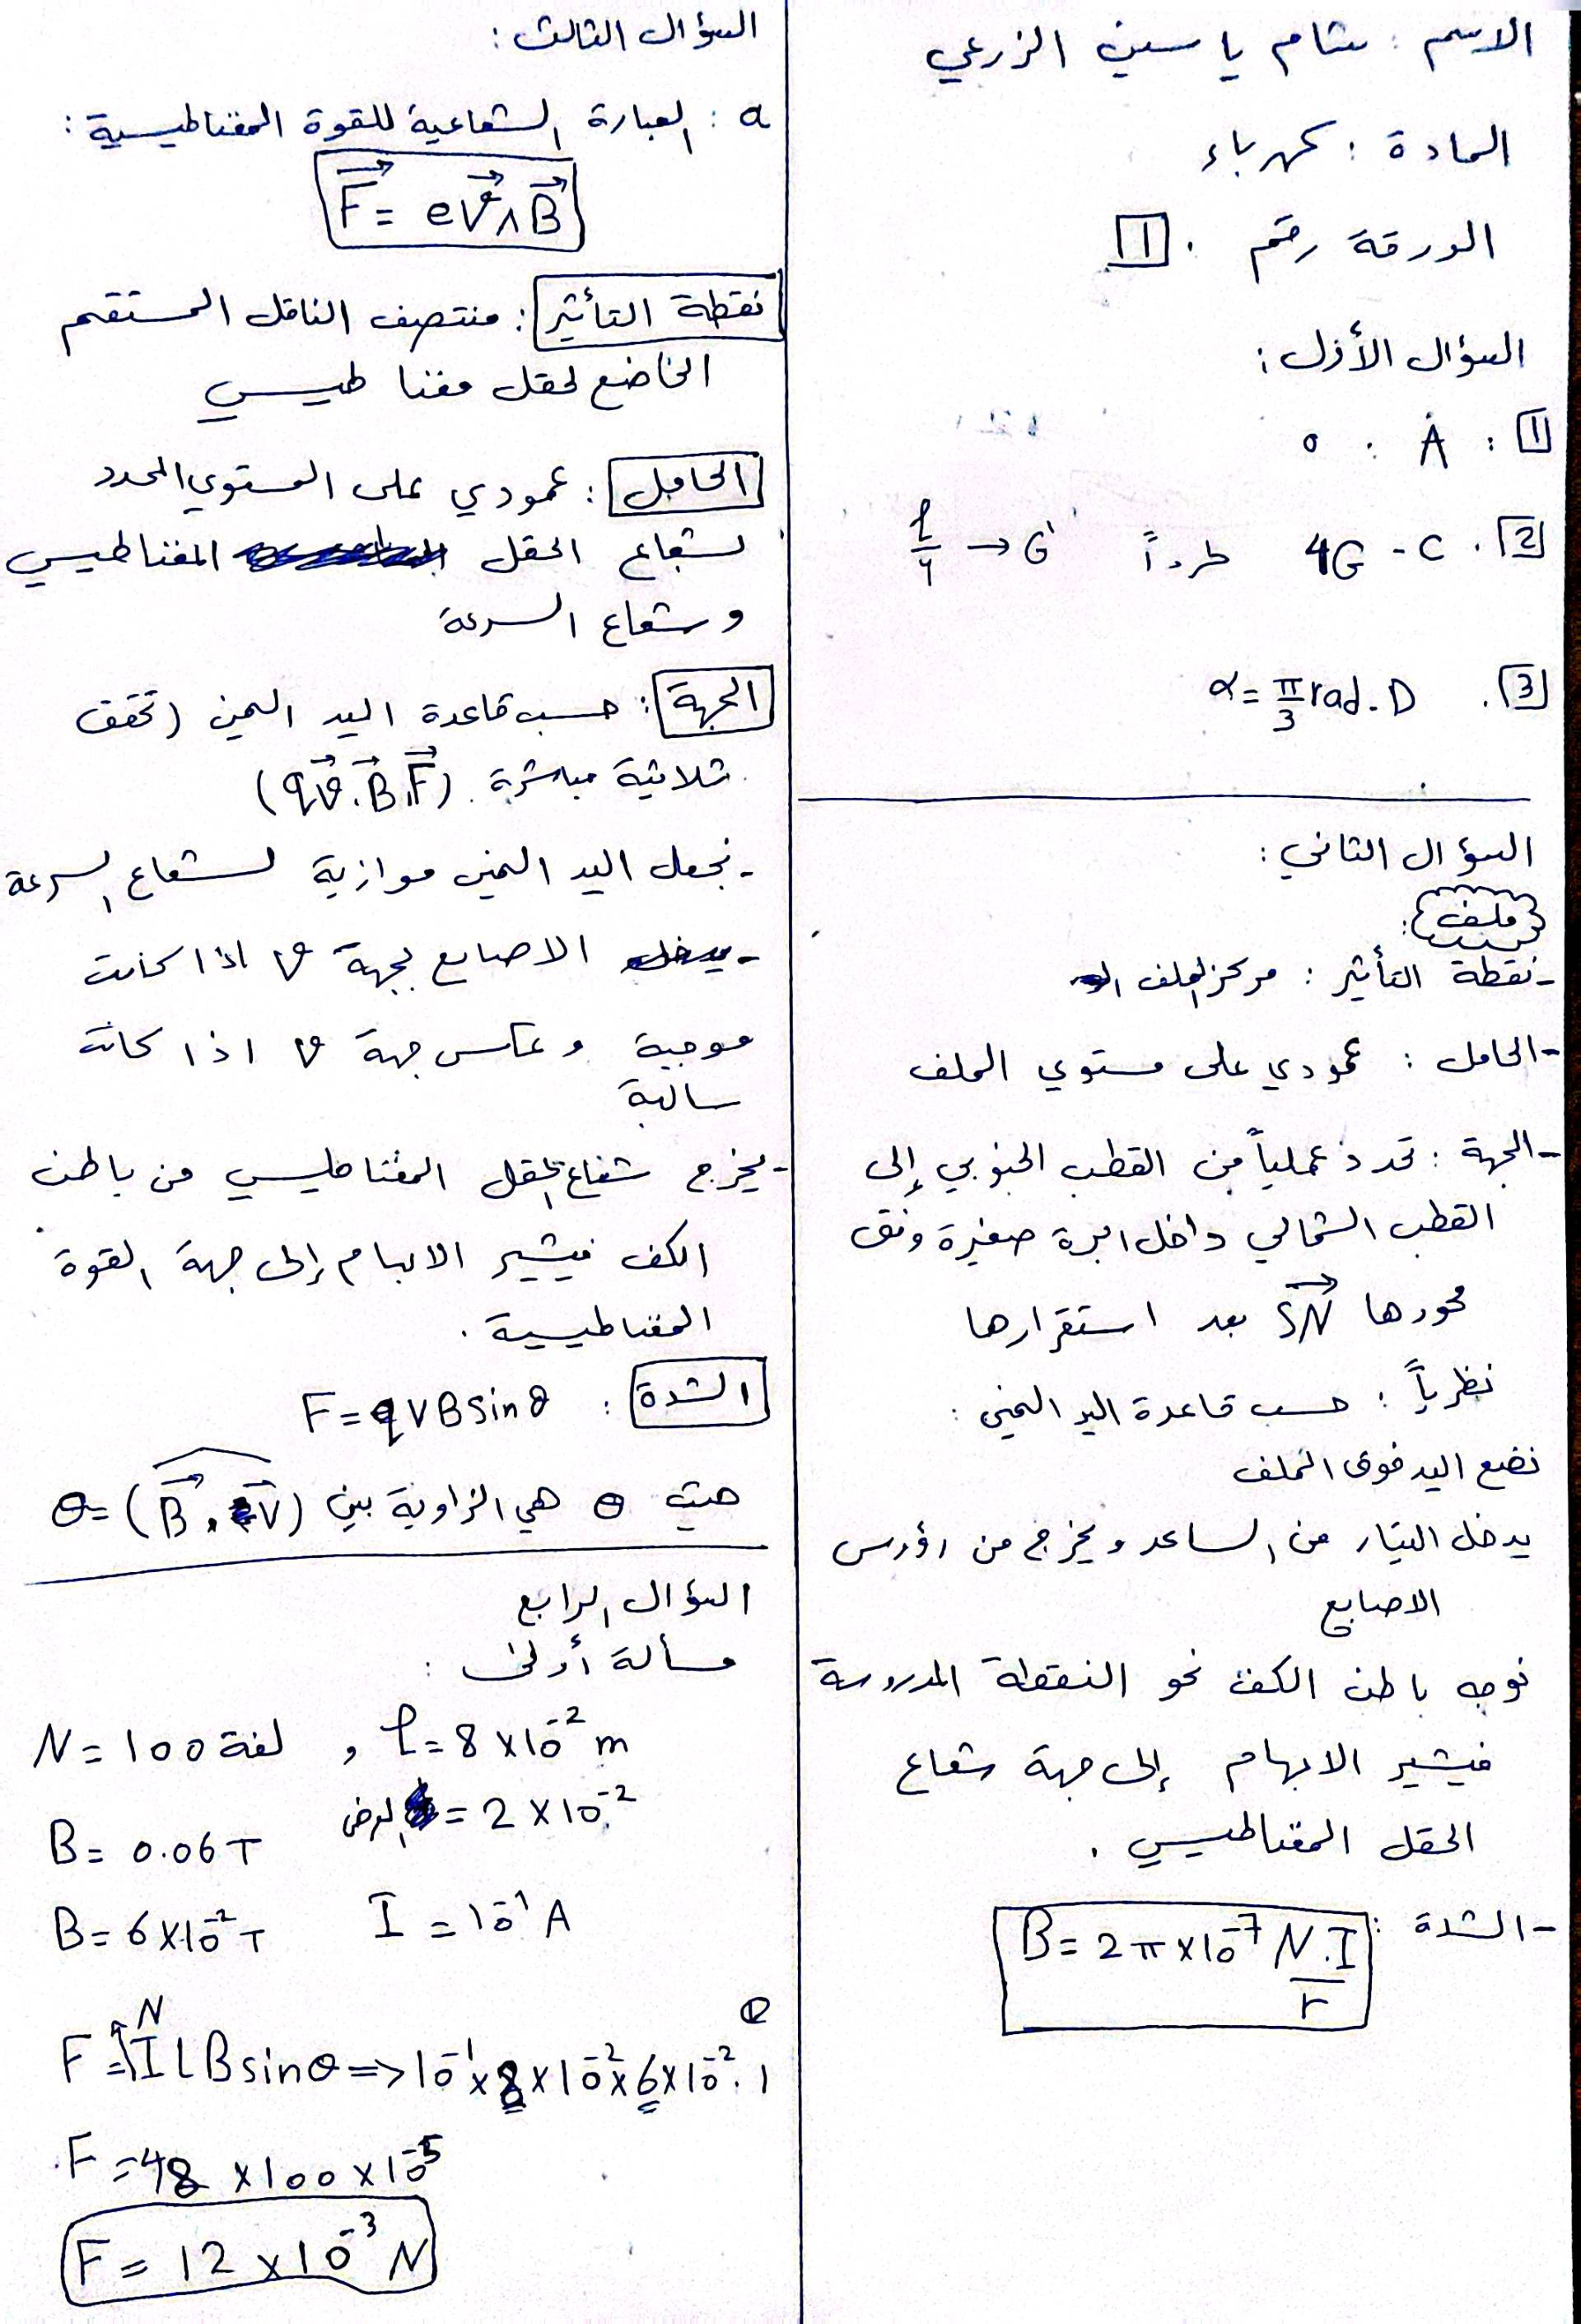 الاسم : شام ياسين الزرعي
المادة : كهرباء
الورقة رقم . 1
السؤال الأول :
1 : A . 0
2 . 4G - C طرداً G' → l/4
3 . α = π/3 rad - D
السؤال الثاني :
ملف :
- نقطة التأثير : مركز الملف
- الحامل : عمودي على مستوي الملف
- الجهة : تحدد عملياً من القطب الجنوبي إلى
القطب الشمالي داخل ابرة صغيرة وفق
محورها SN بعد استقرارها
نظرياً : حسب قاعدة اليد اليمنى :
نضع اليد فوق الملف
يدخل التيار من الساعد ويخرج من رؤوس
الاصابع
نوجه باطن الكف نحو النقطة المدروسة
فيشير الابهام إلى جهة شعاع
الحقل المغناطيسي .
- الشدة : B = 2π×10⁻⁷ N.I/r
السؤال الثالث :
a : العبارة الشعاعية للقوة المغناطيسية :
F = eV∧B
نقطة التأثير : منتصف الناقل المستقيم
الخاضع لحقل مغناطيسي
الحامل : عمودي على المستوي المحدد
لشعاع الحقل المغناطيسي
وشعاع السرعة
الجهة : حسب قاعدة اليد اليمنى (تحقق
ثلاثية مباشرة . (qv.B.F)
- نجعل اليد اليمنى موازية لشعاع السرعة
- الاصابع بجهة v اذا كانت
موجبة وعكس جهة v اذا كانت
سالبة
- يخرج شعاع الحقل المغناطيسي من باطن
الكف فيشير الابهام إلى جهة القوة
المغناطيسية .
الشدة : F = qVBsinθ
حيث θ هي الزاوية بين θ = (B.V)
السؤال الرابع
مسألة أولى :
N = 100 لفة , l = 8×10⁻² m
العرض = 2×10⁻²
B = 0.06 T
B = 6×10⁻² T I = 10⁻¹ A
F = NILBsinθ => 10⁻¹×8×10⁻²×6×10⁻².1
F = 48 ×100×10⁻⁵
F = 12×10⁻³ N